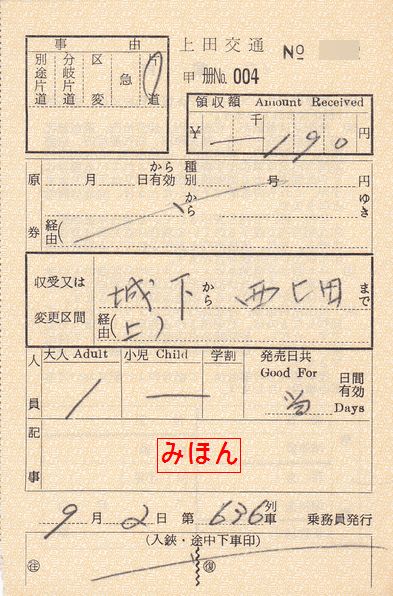 事由
上田交通 No
別途片道 分岐片道 区変 急 片道
甲 册No. 004
領収額 Amount Received
¥ 千 一190円
原券 月 日から有効 種別 号 円
から ゆき
経由(
収受又は変更区間 城下から 西上田まで
経由(上)
人員 大人 Adult 小児 Child 学割 発売日共 Good For 日間有効 Days
1 — 当
記事
みほん
9月2日 第636列車 乗務員発行
(入鋏・途中下車印)
注 復